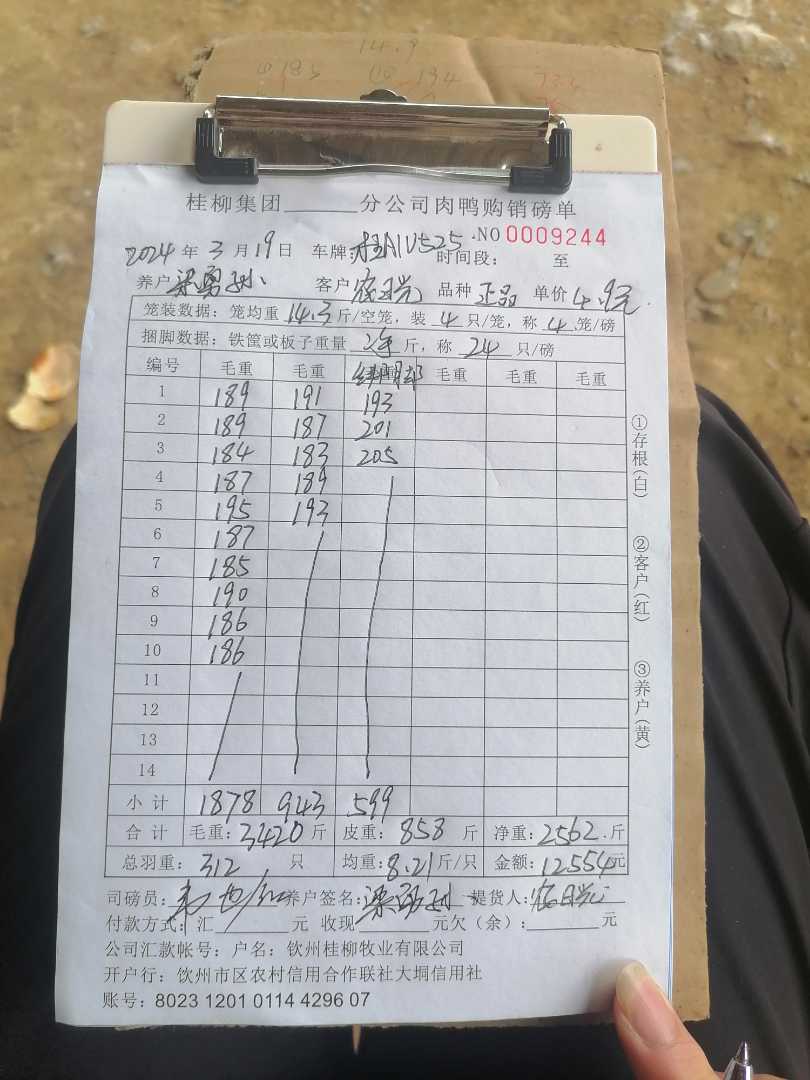 14.9
183 194
桂柳集团______分公司肉鸭购销磅单
NO 0009244
2024年3月19日 车牌:桂A1U525 时间段: 至
养户 梁勇 客户 品种 正品 单价 4.9元
笼装数据:笼均重 14.3 斤/空笼,装 4 只/笼,称 4 笼/磅
捆脚数据:铁筐或板子重量 斤,称 24 只/磅
编号 毛重 毛重 毛重 毛重 毛重
1 189 191 193
2 189 187 201
3 184 183 205
4 187 189
5 195 193
6 187
7 185
8 190
9 186
10 186
11
12
13
14
小计 1878 943 599
合计 毛重:3420斤 皮重:858斤 净重:2562.斤
总羽重:312 只 均重:8.21斤/只 金额:12554元
司磅员: 养户签名:梁勇 提货人:
付款方式:汇______元 收现______元欠(余):______元
公司汇款帐号:户名:钦州桂柳牧业有限公司
开户行:钦州市区农村信用合作联社大垌信用社
账号:8023 1201 0114 4296 07
①存根(白)
②客户(红)
③养户(黄)